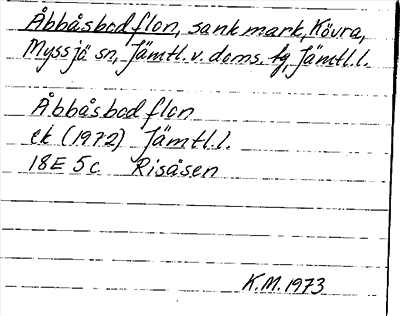 Åbbåsbodflon, sank mark, Kövra,
Myssjö sn, Jämtl. v. doms. tg, Jämtl. l.
Åbbåsbodflon
ek (1972) Jämtl. l.
18E 5c Risåsen
K.M. 1973